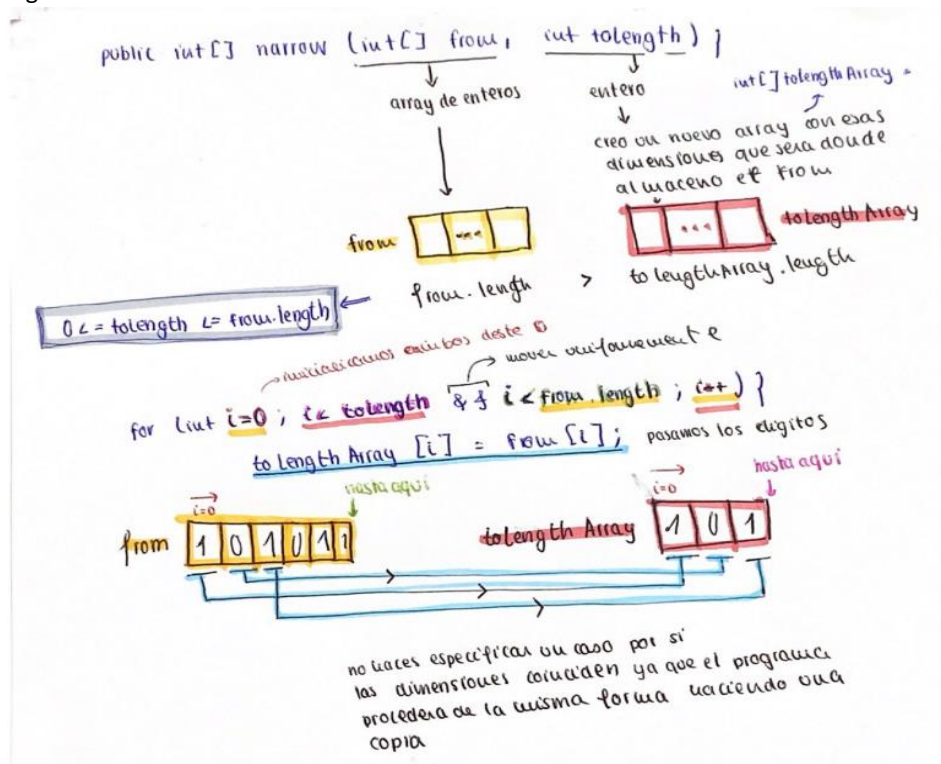 public int[] narrow (int[] from, int tolength) }
array de enteros
entero
int[] tolength Array =
creo un nuevo array con esas
dimensiones que sera donde
almaceno el from
from
...
...
tolength Array
from.length > to lengthArray.length
0 <= tolength <= from.length
inicializamos ambos desde 0
mover uniformemente
for (int i=0; i< tolength && i < from.length ; i++) }
to Length Array [i] = from [i]; pasamos los digitos
i=0
hasta aquí
i=0
hasta aquí
from 1 0 1 0 1 1
tolength Array 1 0 1
especificar un caso por si
las dimensiones coinciden ya que el programa
procedera de la misma forma haciendo una
copia